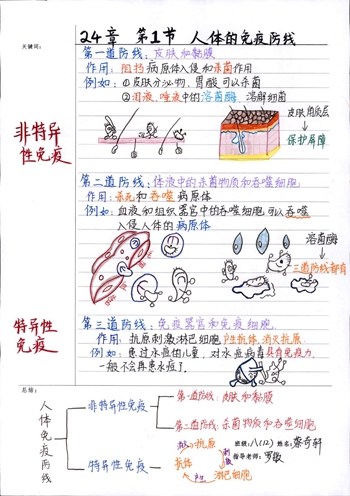 关键词:
24章 第1节 人体的免疫防线
第一道防线: 皮肤和黏膜
作用: 阻挡病原体入侵和杀菌作用
例如: ①皮肤分泌物, 胃酸可以杀菌
②泪液、唾液中的溶菌酶, 溶解细菌
皮肤角质层
保护屏障
非特异性免疫
第二道防线: 体液中的杀菌物质和吞噬细胞
作用: 杀死和吞噬病原体
例如: 血液和组织器官中的吞噬细胞可以吞噬
入侵人体的病原体
溶菌酶
三道防线都有
特异性免疫
第三道防线: 免疫器官和免疫细胞
作用: 抗原刺激淋巴细胞, 产生抗体, 消灭抗原
例如: 患过水痘的儿童, 对水痘病毒具有免疫力,
一般不会再患水痘了.
总结:
人体免疫防线
非特异性免疫
第一道防线: 皮肤和黏膜
第二道防线: 杀菌物质和吞噬细胞
特异性免疫
抗原
刺激
淋巴细胞
产生
抗体
班级: 八(12) 姓名:
指导老师: 罗敏